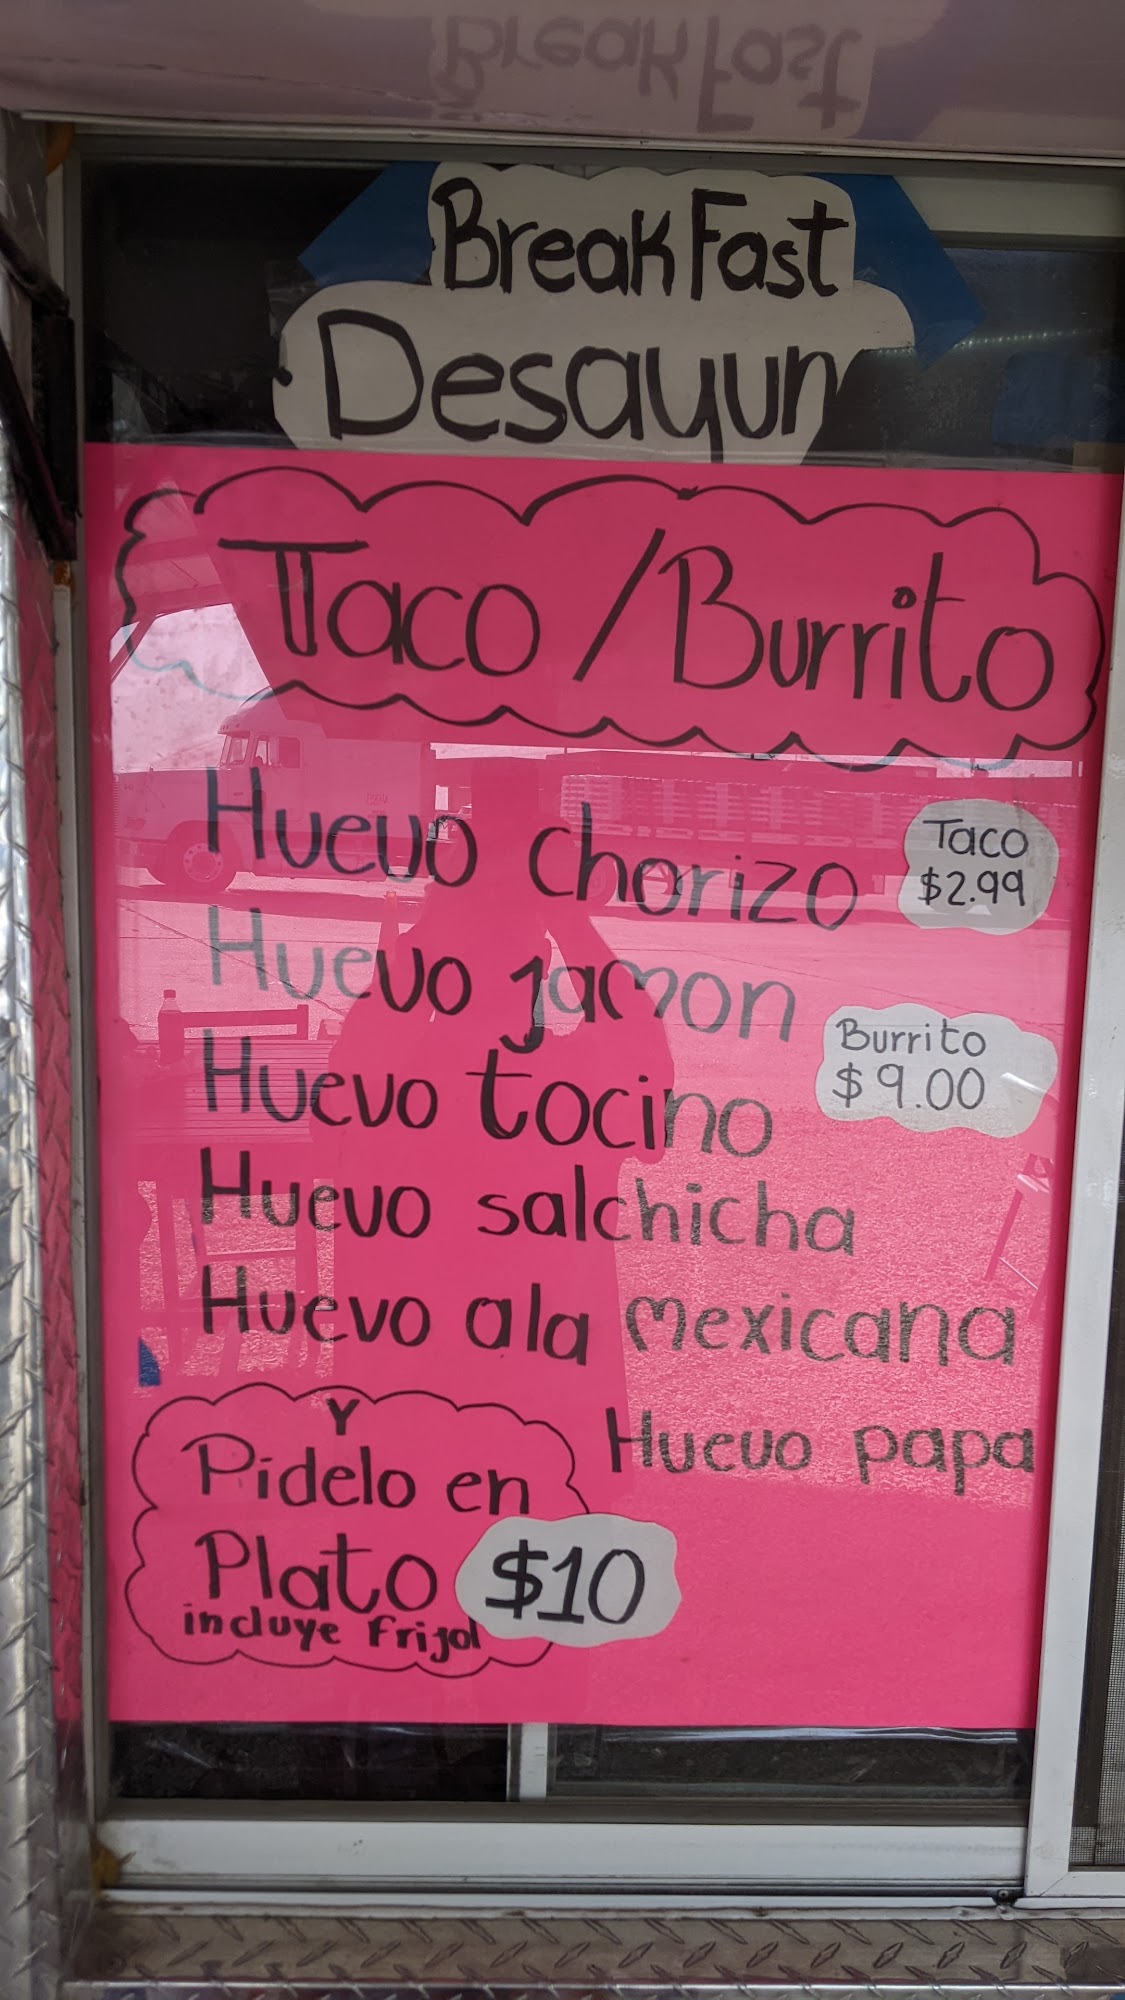 BreakFast
BreakFast
Desayun
Taco/Burrito
Huevo chorizo
Taco
$2.99
Huevo jamon
Burrito
$9.00
Huevo tocino
Huevo salchicha
Huevo ala mexicana
Huevo papa
Y
Pidelo en
Plato $10
incluye frijol